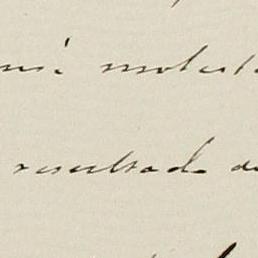 mi. molesta
resultado de